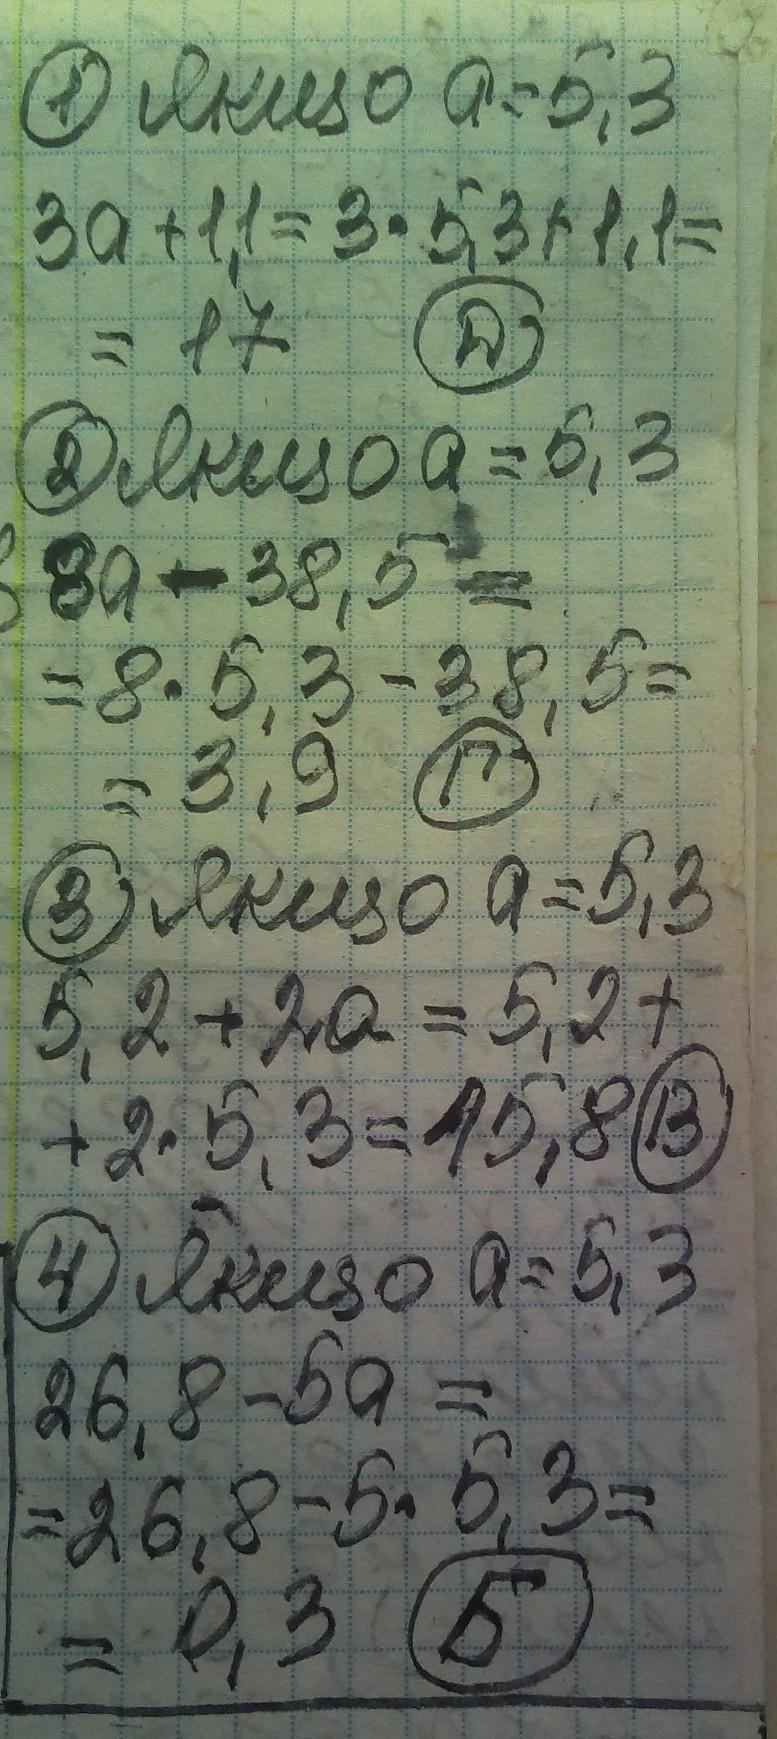 1 Якщо a=5,3
3a+1,1=3·5,3+1,1=
=17 Д
2 Якщо a=5,3
8a-38,5=
=8·5,3-38,5=
=3,9 Г
3 Якщо a=5,3
5,2+2a=5,2+
+2·5,3=15,8 В
4 Якщо a=5,3
26,8-5a=
=26,8-5·5,3=
=0,3 Б